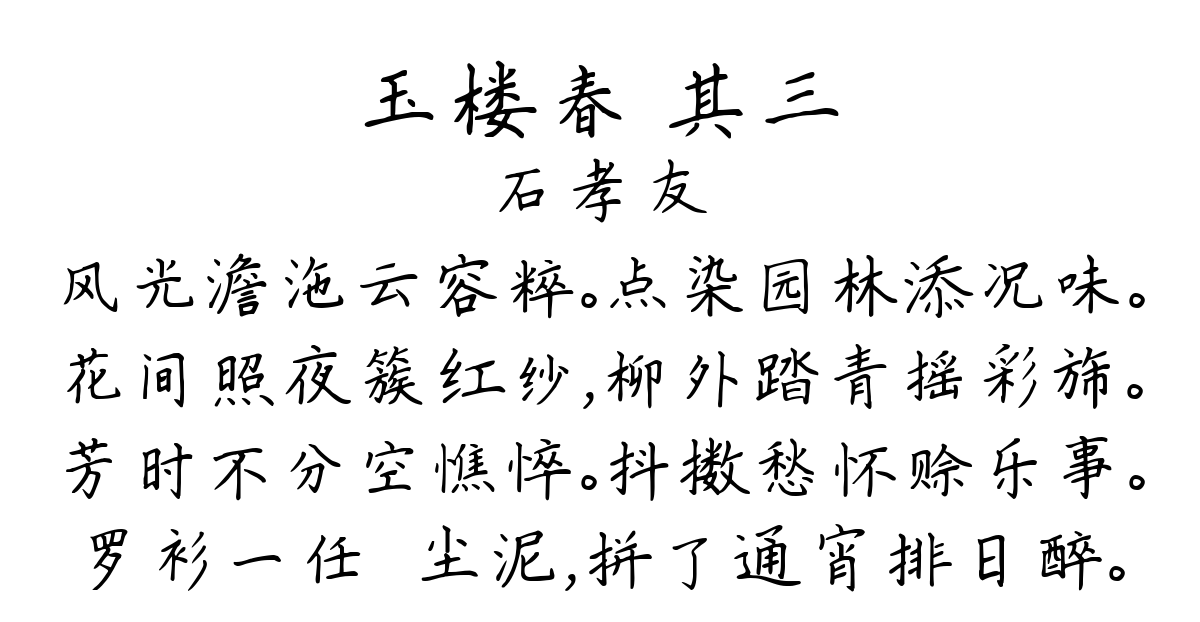 玉楼春 其三
石孝友
风光澹沲云容粹。点染园林添况味。
花间照夜簇红纱,柳外踏青摇彩斾。
芳时不分空憔悴。抖擞愁怀赊乐事。
罗衫一任 尘泥,拚了通宵排日醉。